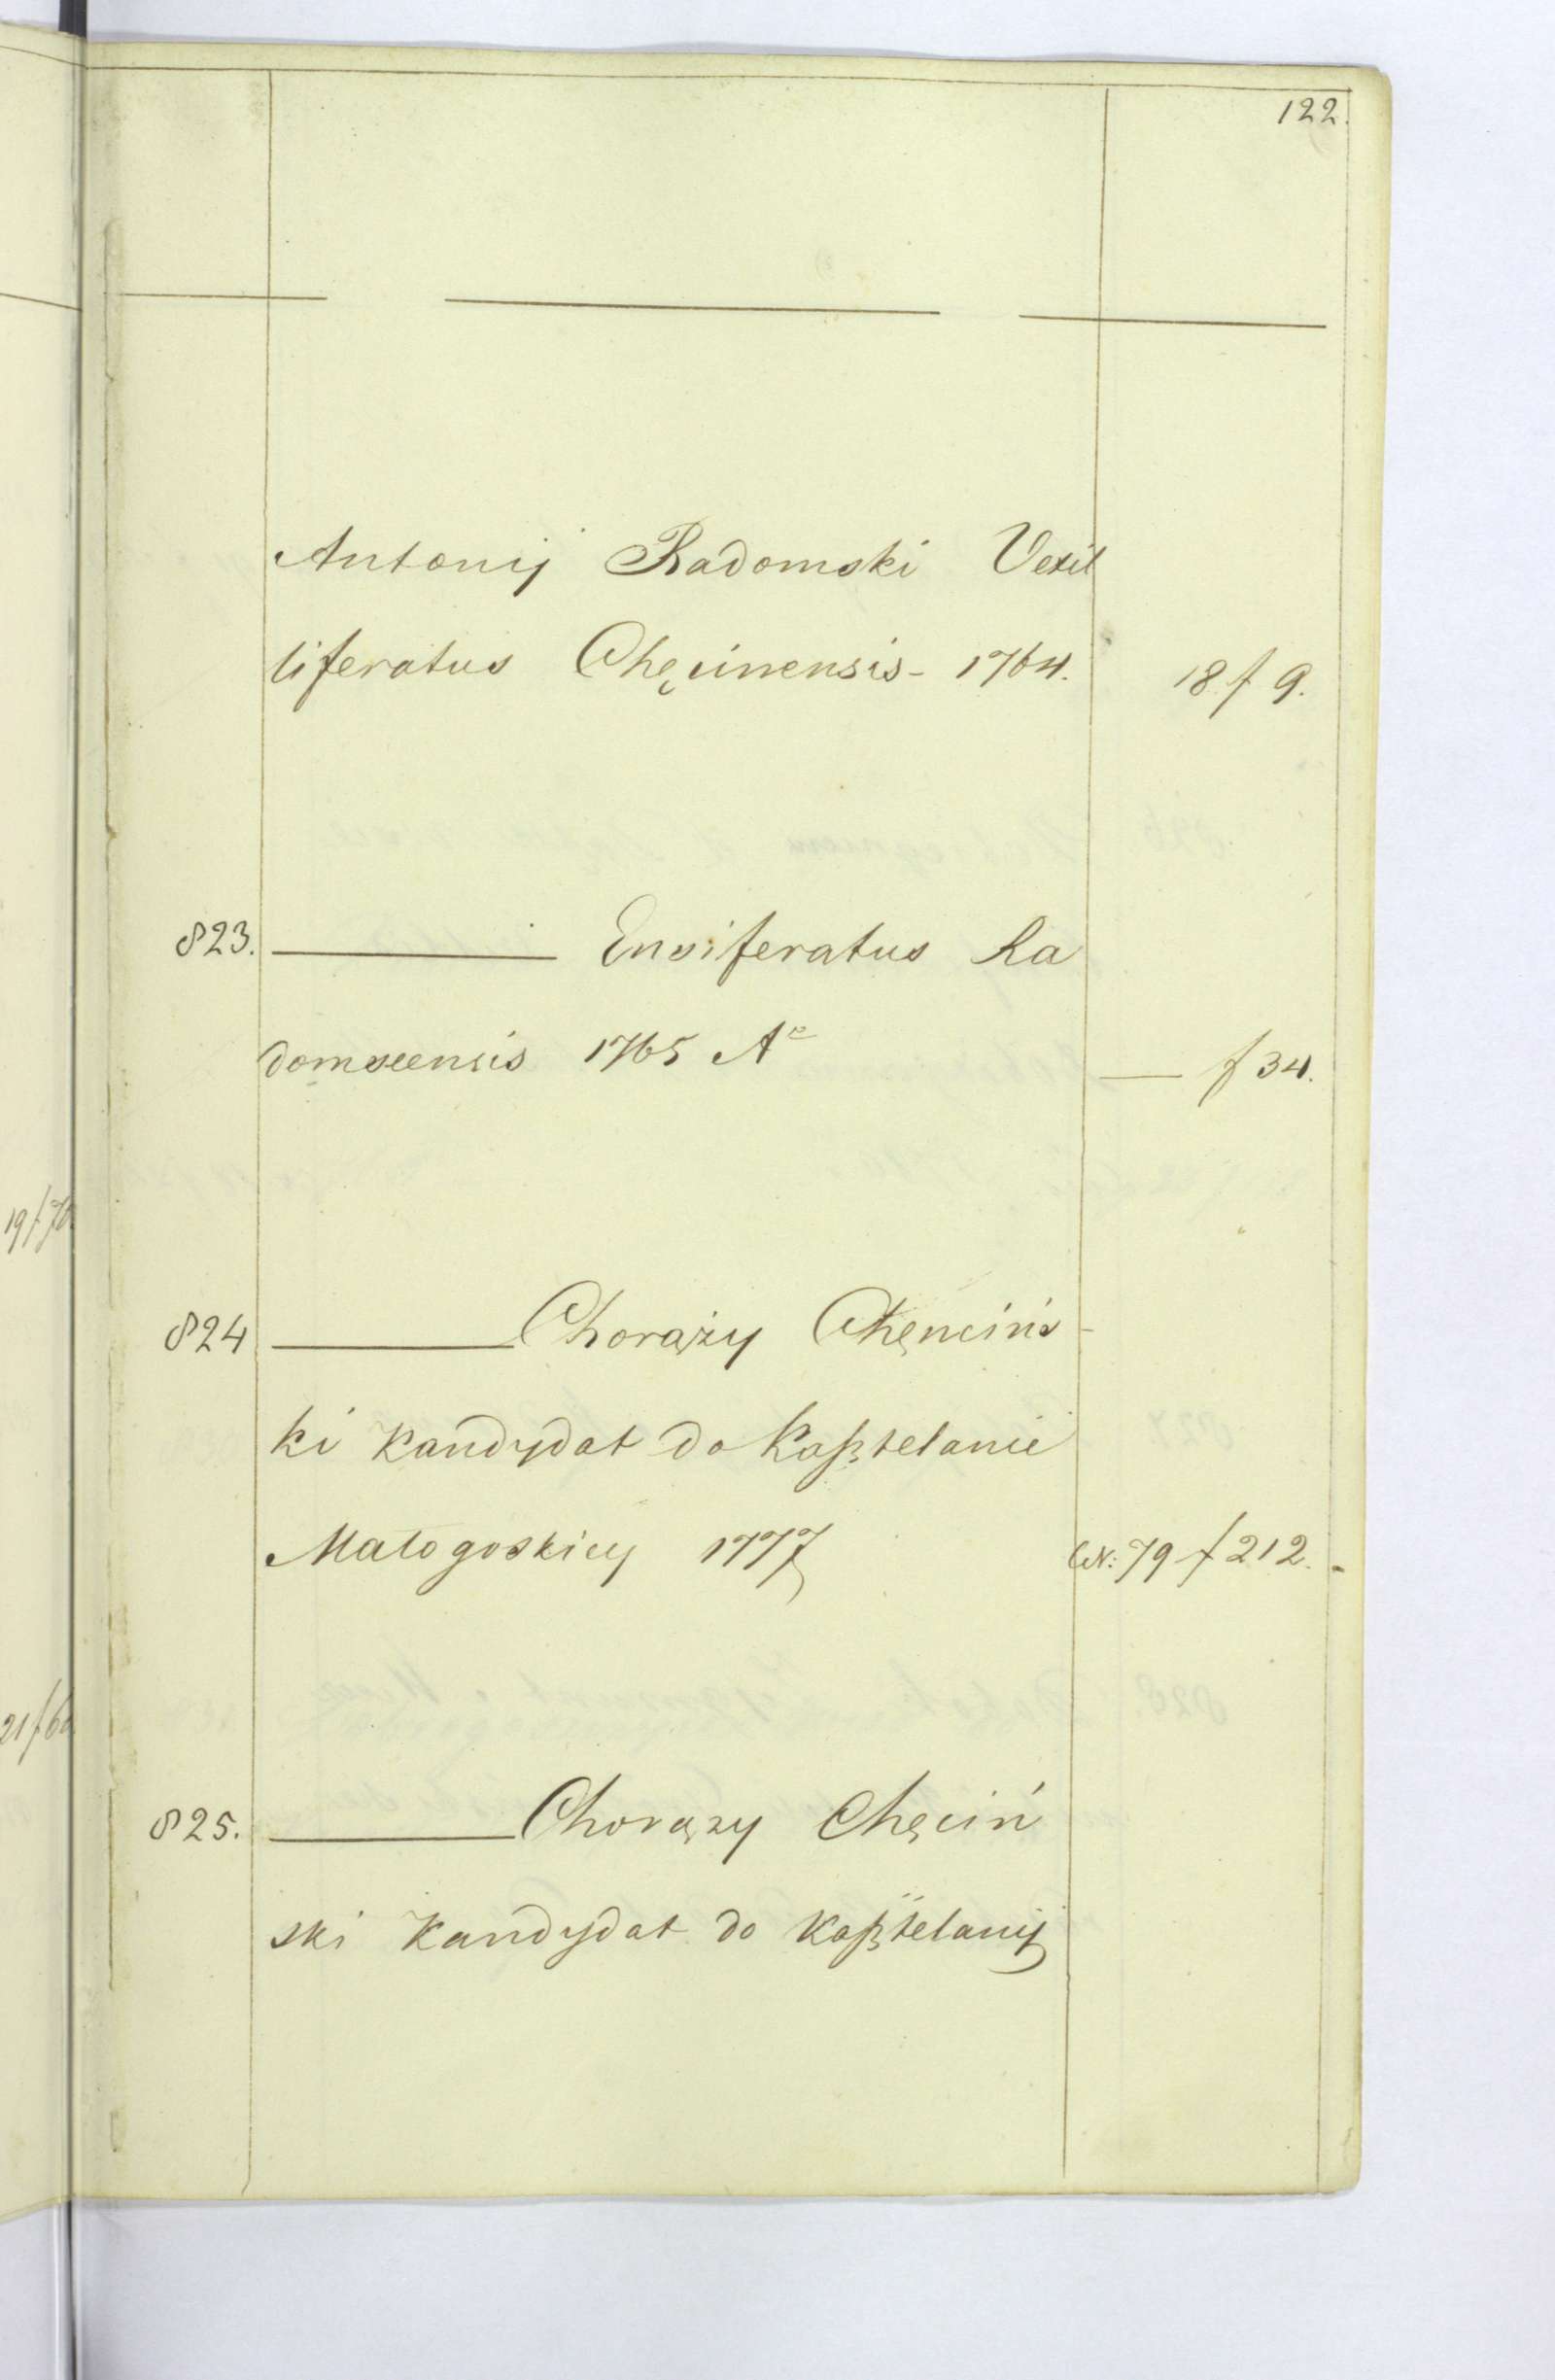 122.
Antonij Radomski Vexil
liferatus Chęcinensis - 1764. 18 f 9.
823. ——— Ensiferatus Ra
domscensis 1765 Aº — f 34.
824 ——— Chorąży Chęncińs-
ki Kandydat do Kasztelanii
Małogoskiey 1777 W: 79 f 212.
825. ——— Chorązy Chęciń
ski Kandydat do Kasztelanij
19 f 70